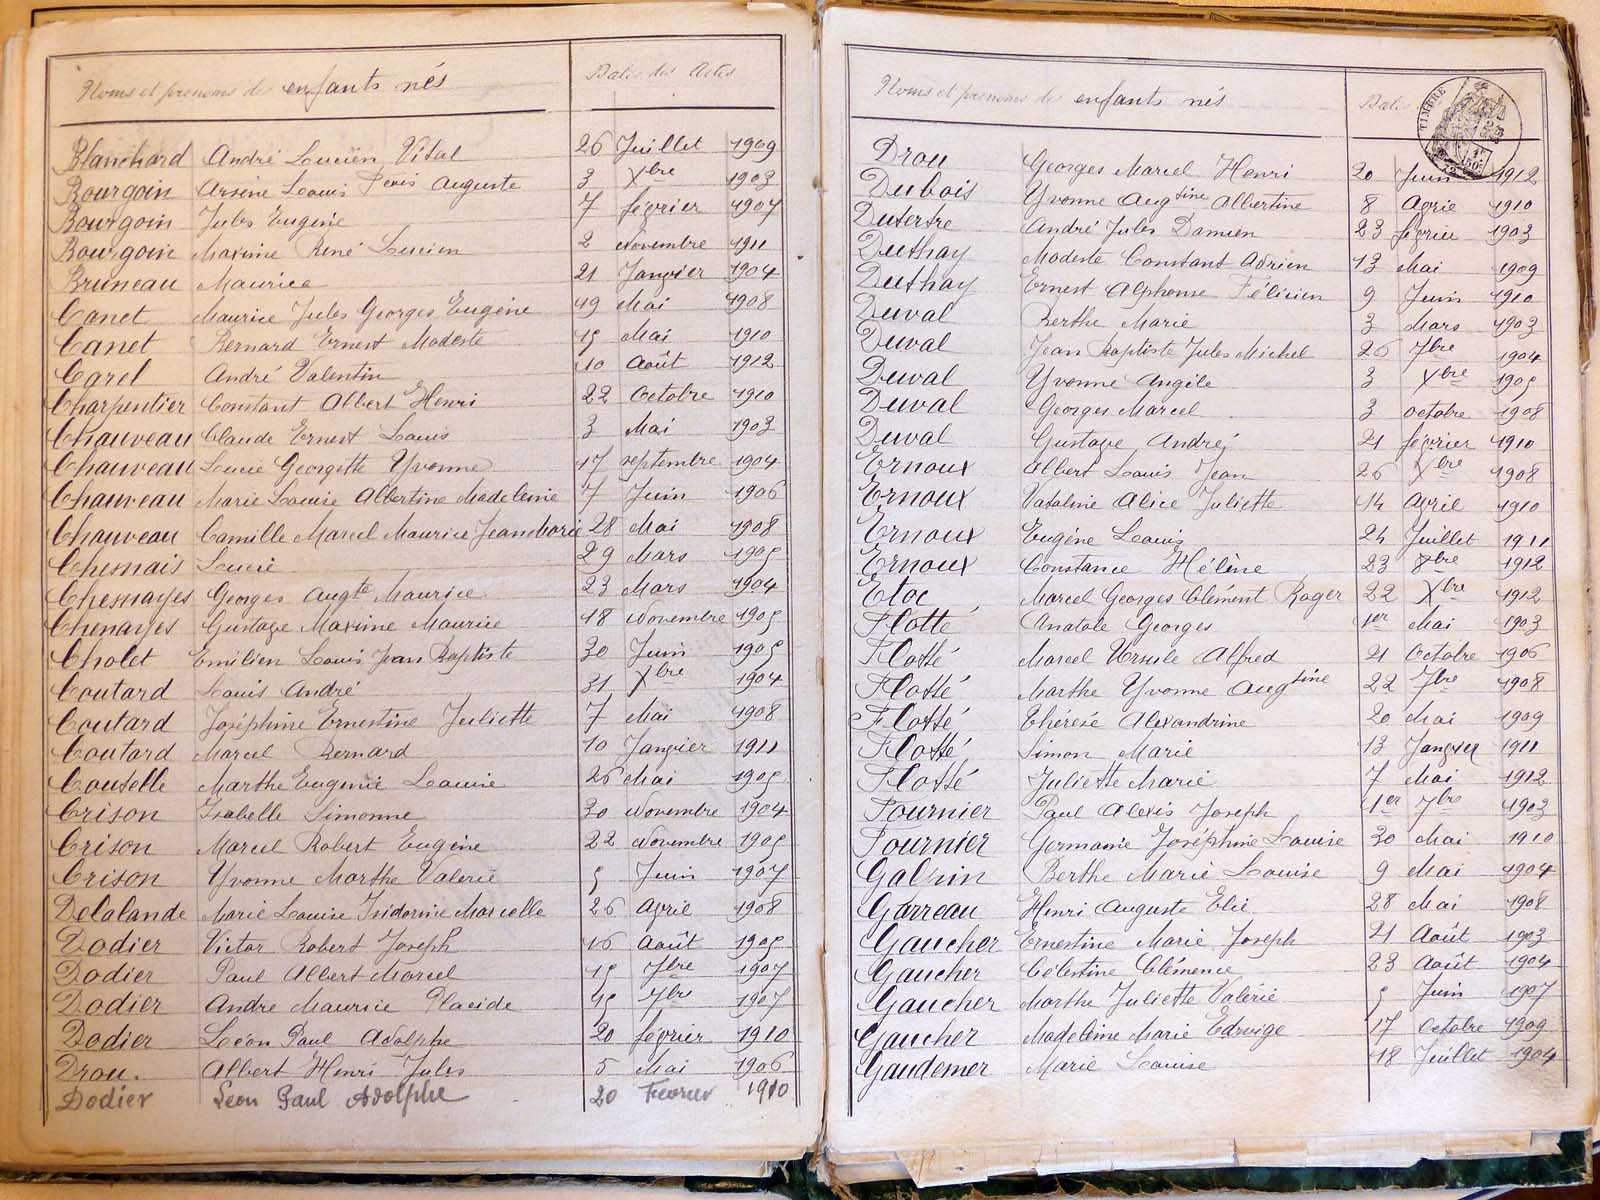 Noms et prénoms des enfants nés Dates des Actes
Blanchard André Lucien Vital 26 Juillet 1909
Bourgoin Arsène Louis Denis Auguste 3 Xbre 1903
Bourgoin Jules Eugène 7 février 1907
Bourgoin Maxime René Lucien 2 Novembre 1911
Bruneau Maurice 21 Janvier 1904
Canet Maurice Jules Georges Eugène 19 Mai 1908
Canet Bernard Ernest Modeste 15 Mai 1910
Carel André Valentin 10 Août 1912
Charpentier Constant Albert Henri 22 Octobre 1910
Chauveau Claude Ernest Louis 3 Mai 1903
Chauveau Lucie Georgette Yvonne 17 septembre 1904
Chauveau Marie Louise Albertine Madeleine 7 Juin 1906
Chauveau Camille Marcel Maurice Jean Marie 28 Mai 1908
Chesnais Lucie 29 Mars 1905
Chesnayes Georges Augte Maurice 23 Mars 1904
Chenayes Gustave Maxime Maurice 18 Novembre 1905
Cholet Emilien Louis Jean Baptiste 30 Juin 1905
Coutard Louis André 31 Xbre 1904
Coutard Joséphine Ernestine Juliette 7 Mai 1908
Coutard Marcel Bernard 10 Janvier 1911
Coutelle Marthe Eugenie Louise 26 Mai 1905
Crison Isabelle Simonne 30 Novembre 1904
Crison Marcel Robert Eugène 22 Novembre 1905
Crison Yvonne Marthe Valerie 5 Juin 1907
Delalande Marie Louise Isidorine Marcelle 26 Avril 1908
Dodier Victor Robert Joseph 16 Août 1905
Dodier Paul Albert Marcel 15 7bre 1907
Dodier André Maurice Placide 15 7bre 1907
Dodier Léon Paul Adolphe 20 février 1910
Drou. Albert Henri Jules 5 Mai 1906
Dodier Léon Paul Adolphe 20 Fevrier 1910
Noms et prénoms des enfants nés Dates
TIMBRE
Drou Georges Marcel Henri 20 Juin 1912
Dubois Yvonne Augstine Albertine 8 Avril 1910
Dutertre André Jules Damien 23 février 1903
Duthay Modeste Constant Adrien 13 Mai 1909
Duthay Ernest Alphonse Félicien 9 Juin 1910
Duval Berthe Marie 3 Mars 1903
Duval Jean Baptiste Jules Michel 26 7bre 1904
Duval Yvonne Angèle 3 Xbre 1905
Duval Georges Marcel 3 octobre 1908
Duval Gustave André 21 février 1910
Ernoux Albert Louis Jean 26 Xbre 1908
Ernoux Alice Juliette 14 Avril 1910
Ernoux Eugène Louis 24 Juillet 1911
Ernoux Constance Hélène 23 8bre 1912
Etoc Marcel Georges Clément Roger 22 Xbre 1912
Flotté Anatole Georges 1er Mai 1903
Flotté Marcel Ursule Alfred 21 Octobre 1906
Flotté Marthe Yvonne Augstine 22 7bre 1908
Flotté Thérèse Alexandrine 20 Mai 1909
Flotté Simon Marie 13 Janvier 1911
Flotté Juliette Marie 7 Mai 1912
Fournier Paul Alexis Joseph 1er 7bre 1903
Fournier Germaine Joséphine Louise 30 Mai 1910
Berthe Marie Louise 9 Mai 1904
Garreau Henri Auguste Elie 28 Mai 1908
Gaucher Ernestine Marie Joseph 21 Août 1903
Gaucher Célestine Clémence 23 Août 1904
Gaucher Marthe Juliette Valérie 5 Juin 1907
Gaucher Madeleine Marie Edwige 17 Octobre 1909
Gaudemer Marie Louise 18 Juillet 1904